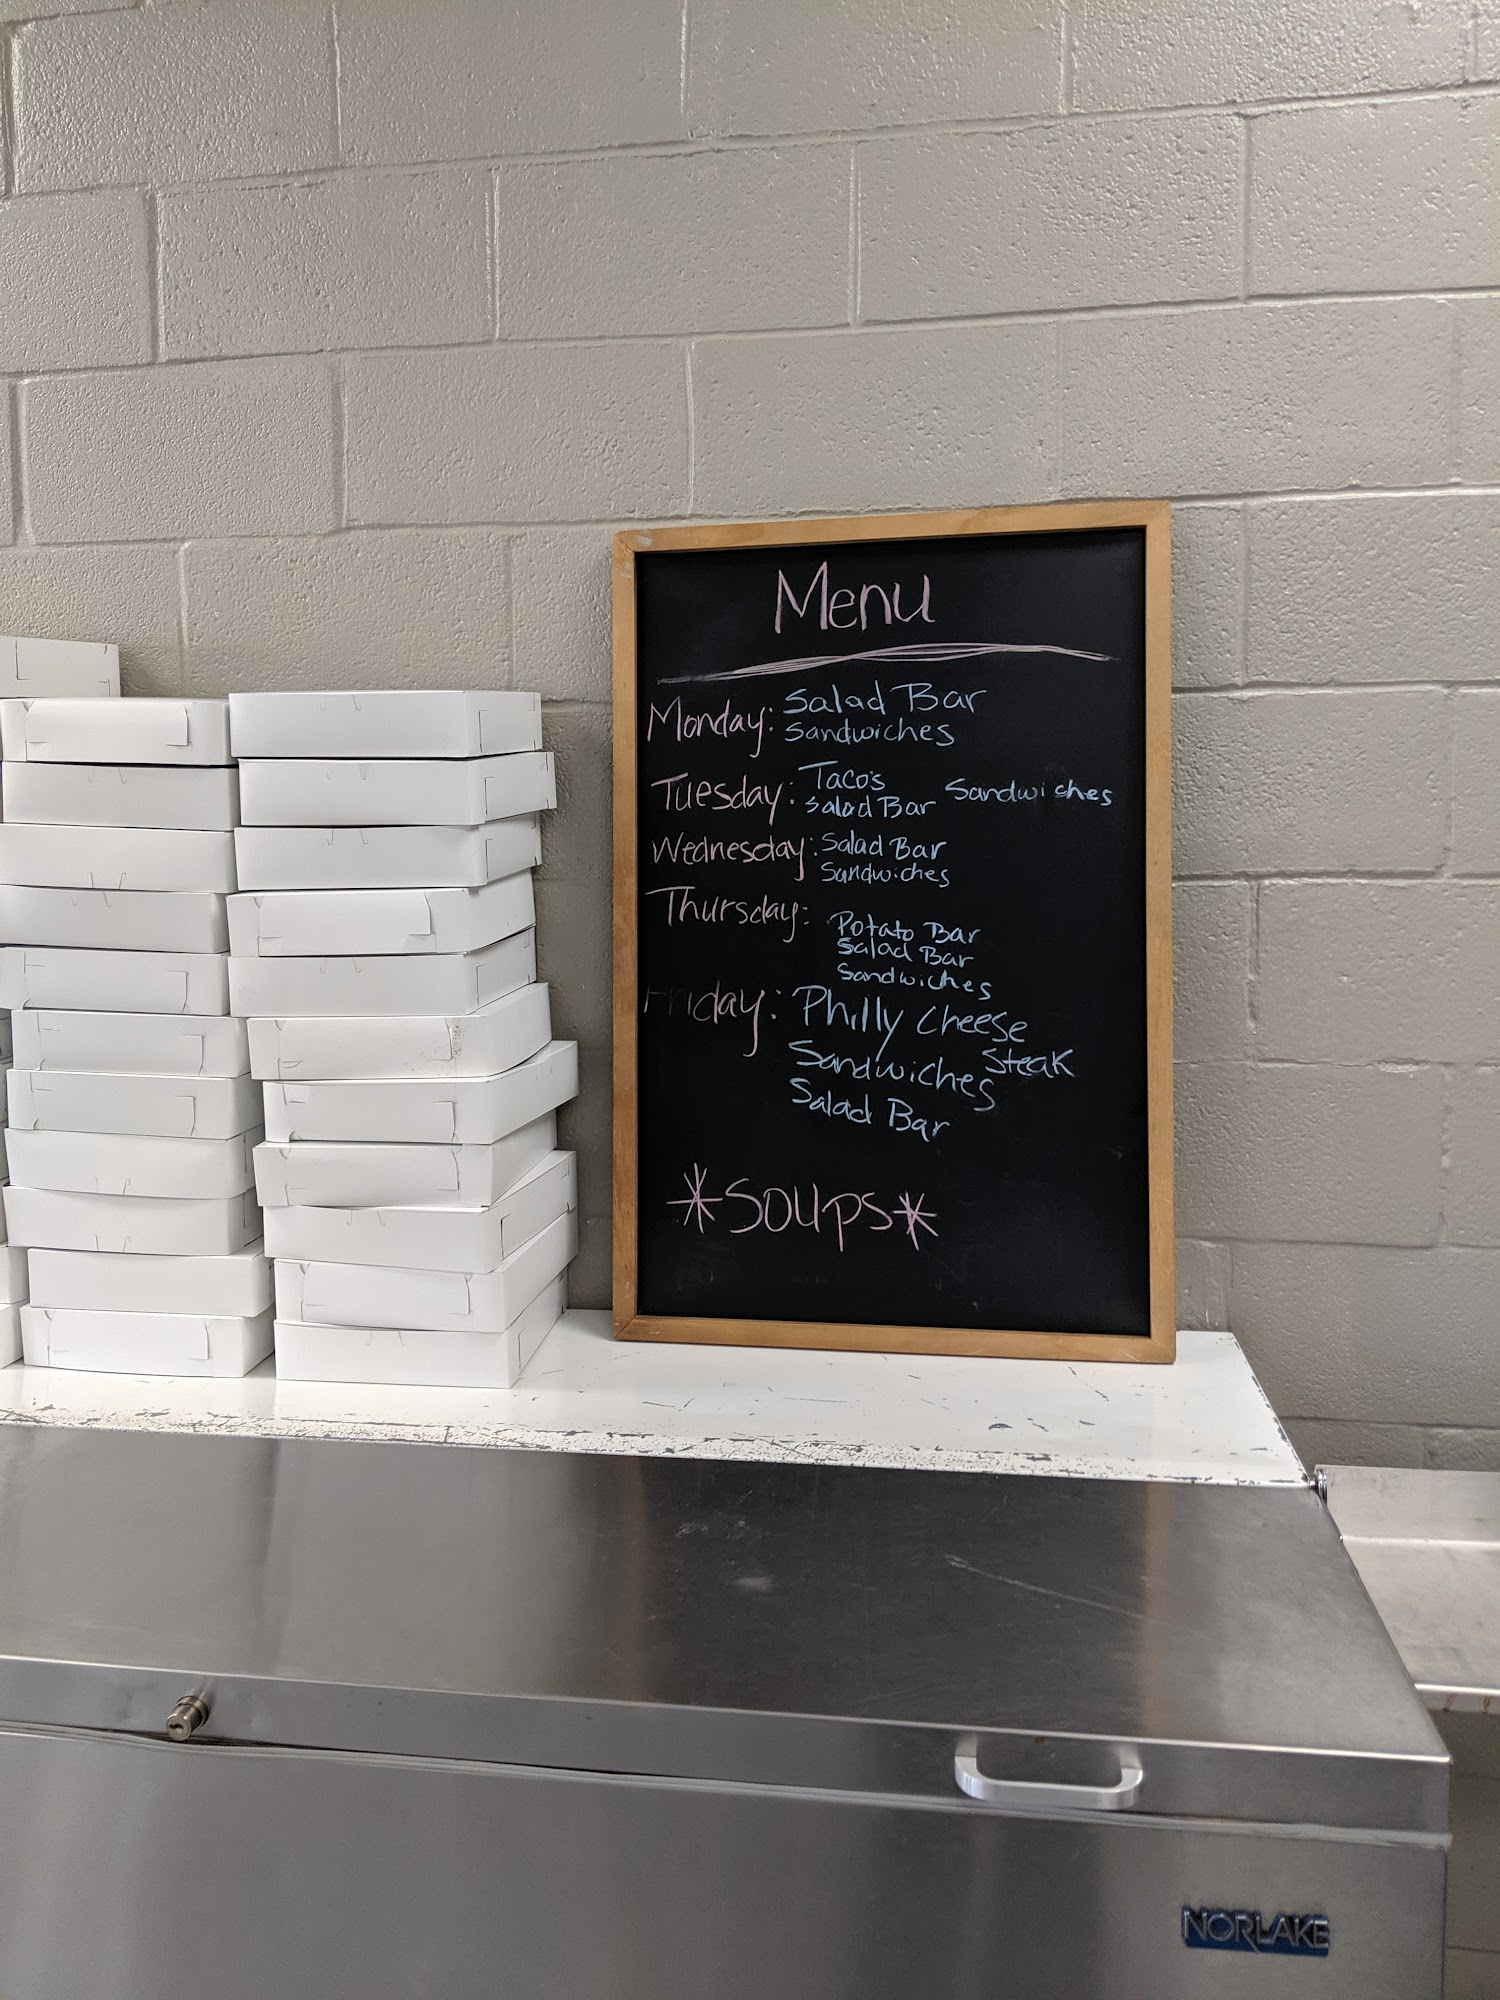 Menu
Monday: Salad Bar
Sandwiches
Tuesday: Taco's
Salad Bar Sandwiches
Wednesday: Salad Bar
Sandwiches
Thursday:
Potato Bar
Salad Bar
Sandwiches
Friday: Philly Cheese
Steak
Sandwiches
Salad Bar
*Soups*
NORLAKE